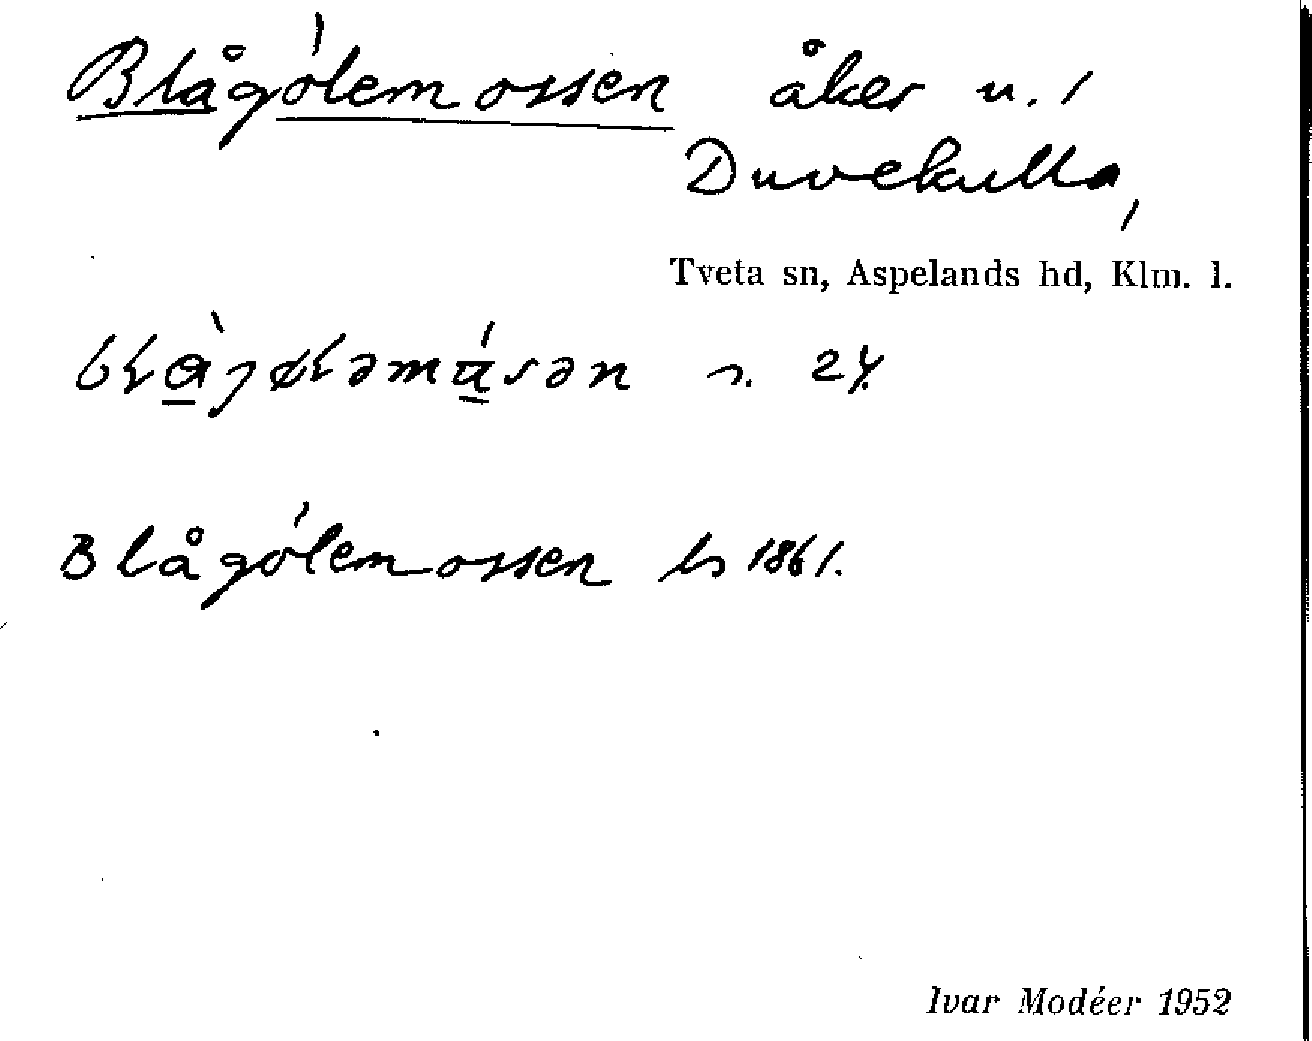 Blågölemossen åker u. /
Duvekulla,
Tveta sn, Aspelands hd, Klm. l.
s. 24.
Blågölemossen ls 1861.
Ivar Modéer 1952